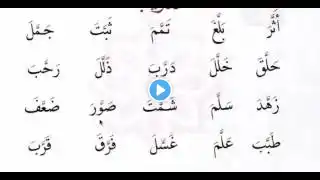 أَثَّرَ بَلَّغَ تَمَّمَ ثَبَّتَ جَمَّلَ
حَلَّقَ خَلَّلَ دَرَّبَ ذَلَّلَ رَحَّبَ
زَهَّدَ سَلَّمَ شَمَّتَ صَوَّرَ ضَعَّفَ
طَبَّبَ عَلَّمَ غَسَّلَ فَرَّقَ قَرَّبَ